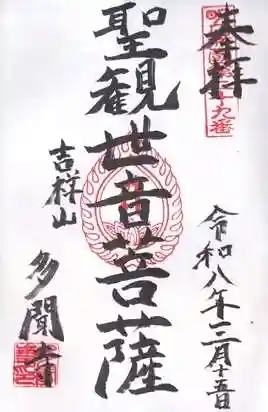 奉拝
令和八年三月十五日
聖観世音菩薩
吉祥山
多聞寺